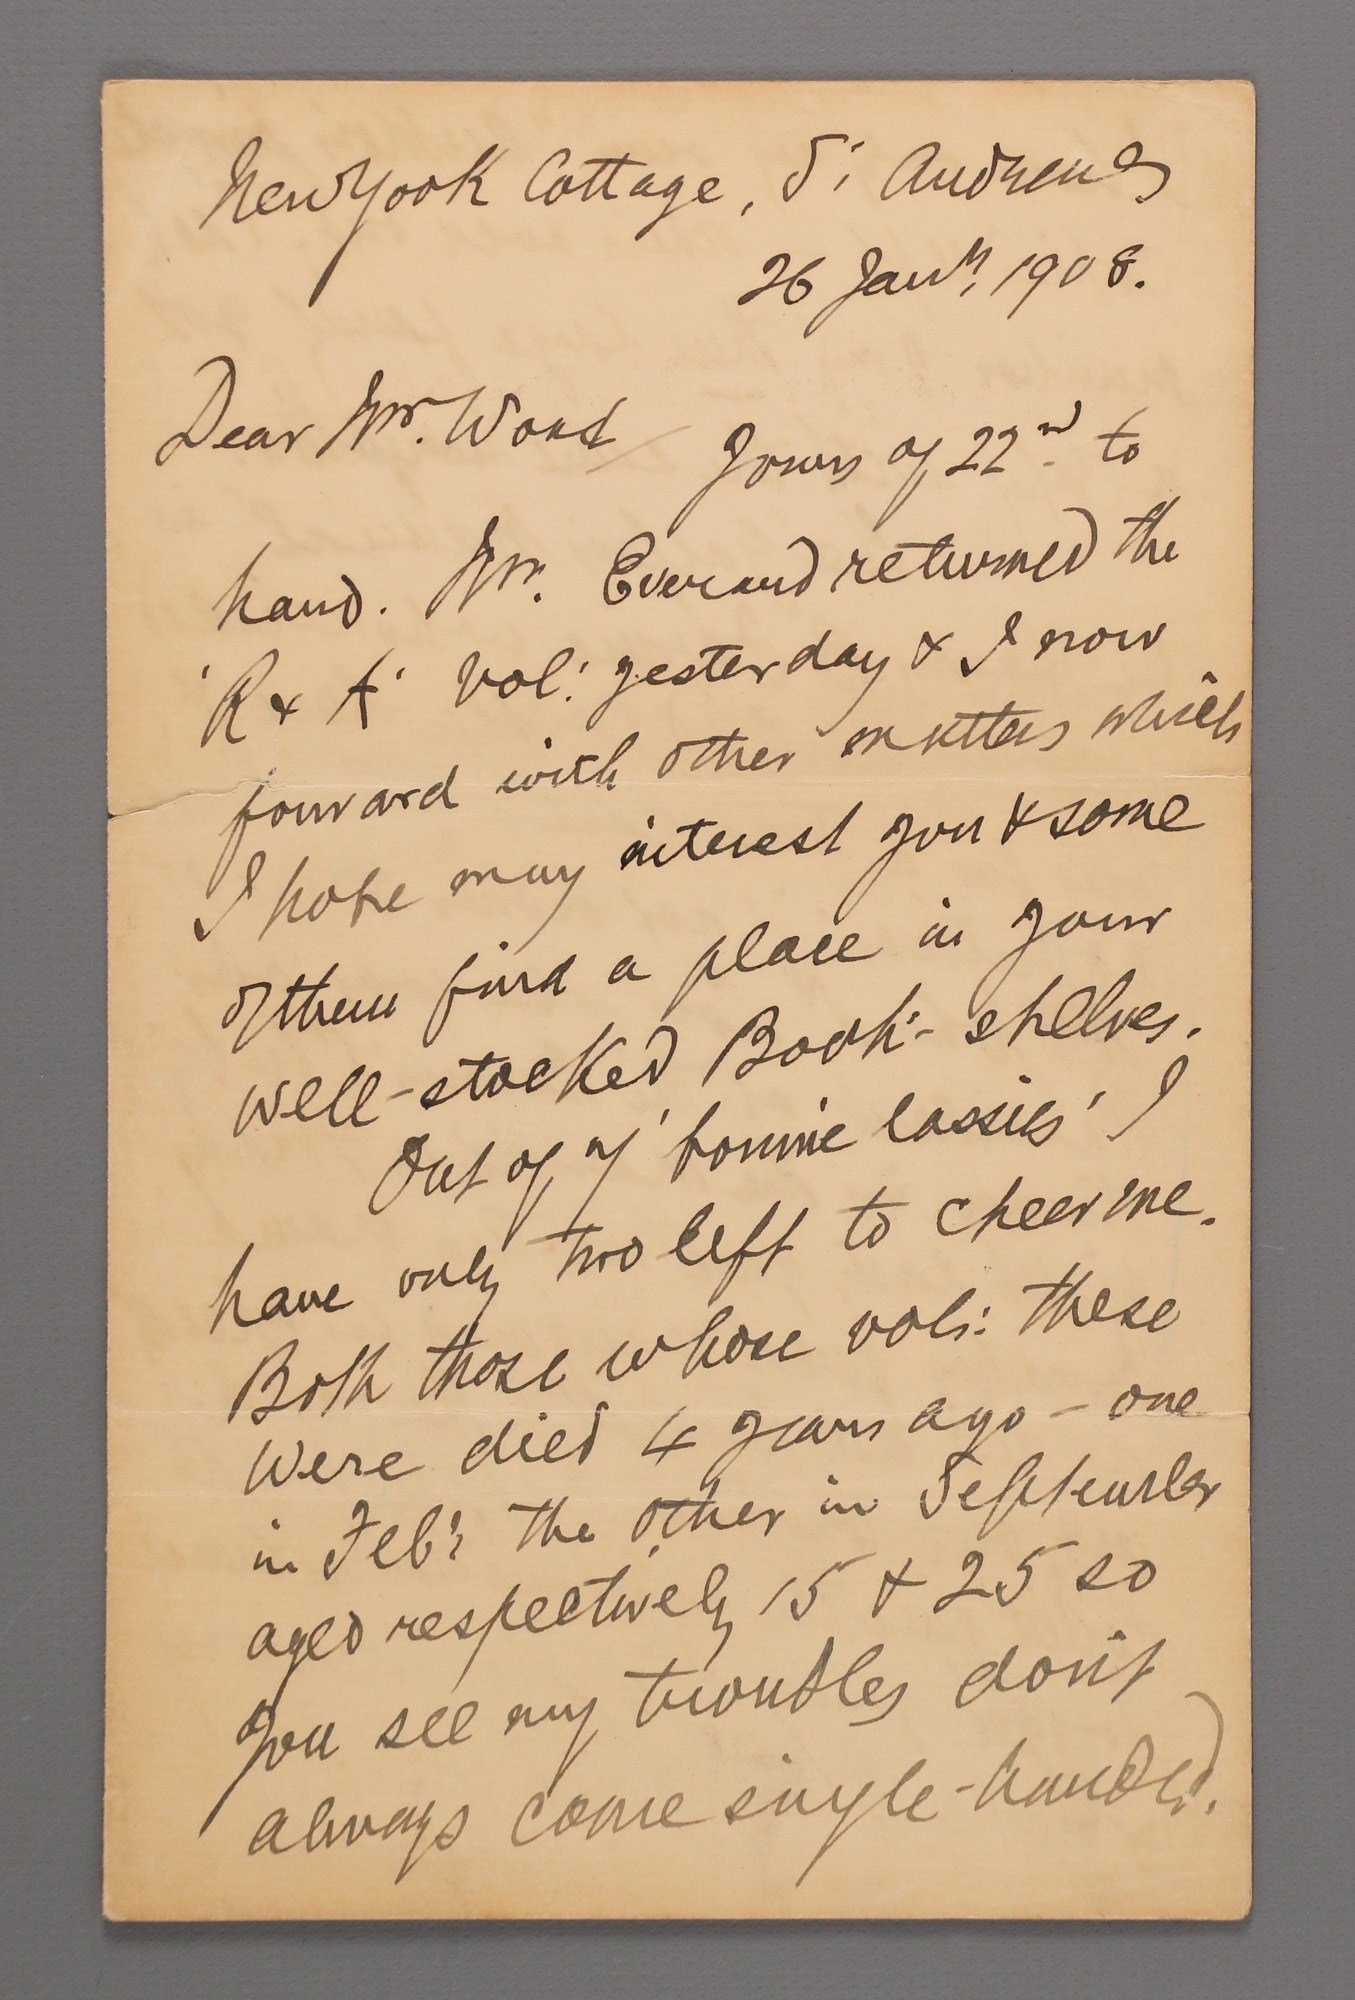 New York Cottage, St Andrews
26 Jany, 1908.
Dear Mr. Wood Yours of 22nd to
hand. Mr. Everard returned the
'R & A' Vol: yesterday & I now
forward with other matters which
I hope may interest you & some
of them find a place in your
well-stocked Book-shelves.
Out of 7 'bonnie lassies' I
have only two left to cheer me.
Both those whose vols: these
were died 4 years ago - one
in Feby the other in September
aged respectively 15 & 25 so
you see my troubles don't
always come single-handed.